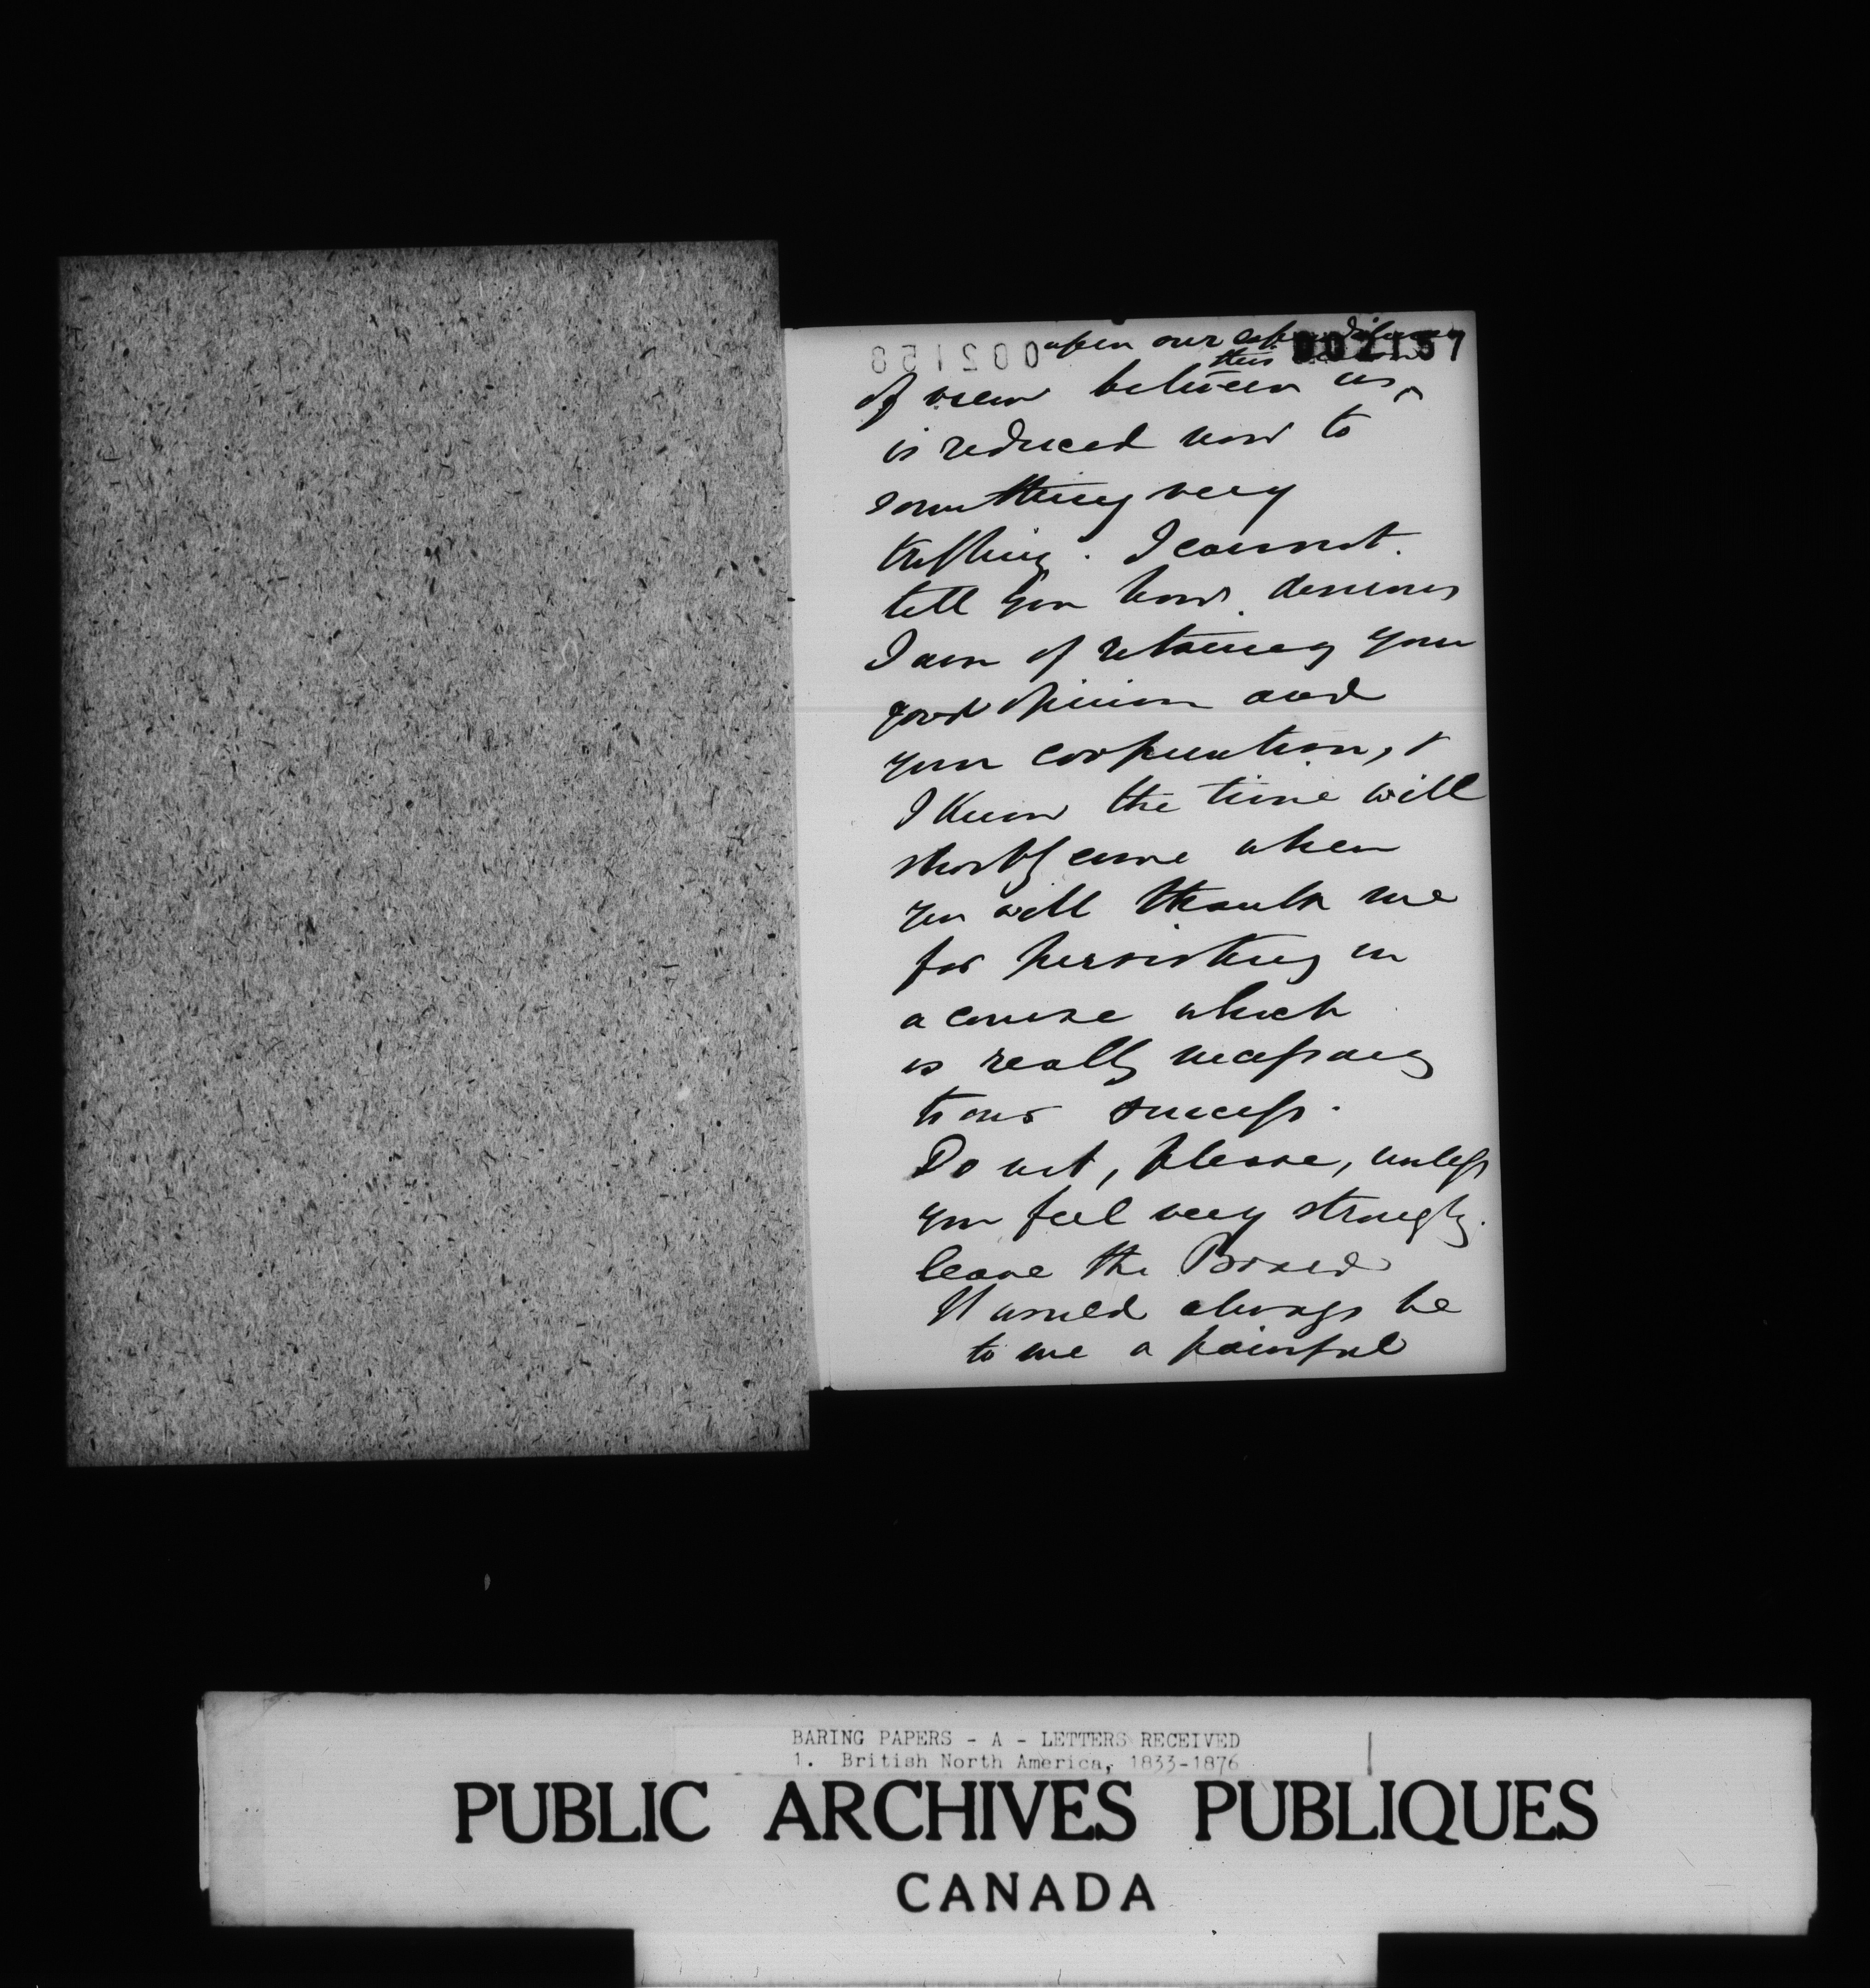 002157
upon our
of view between us, this
is reduced now to
something very
trifling. I cannot
tell you how desirous
I am of retaining your
good opinion and
your cooperation, &
I know the time will
shortly come when
you will thank me
for persisting in
a course which
is really necessary
to our success.
Do not, please, unless
you feel very strongly.
leave the Board
It would always be
to me a painful
BARING PAPERS - A - LETTERS RECEIVED
1. British North America, 1833-1876
PUBLIC ARCHIVES PUBLIQUES
CANADA